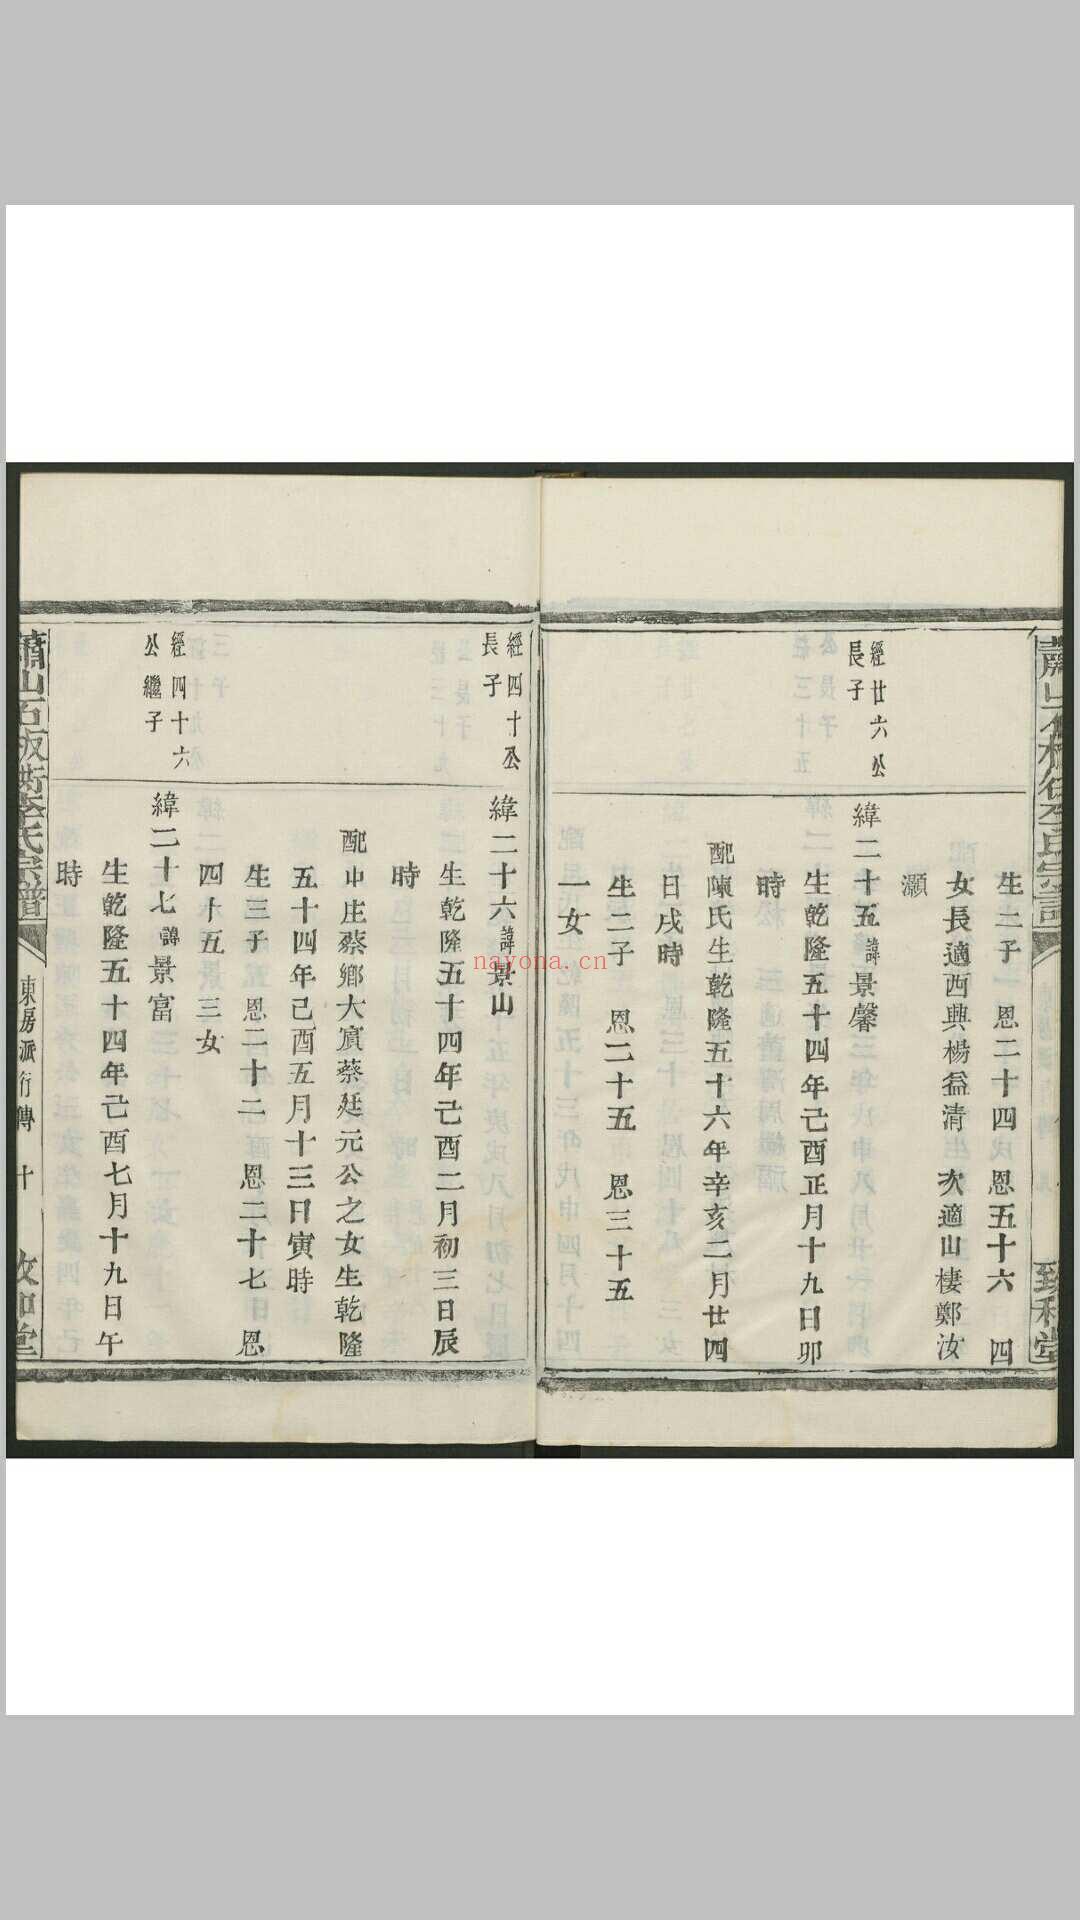 生二子　恩二十四　恩五十六　四
女長適西興楊益清　次適山棲鄭汝
灝
經廿六公
長子
緯二十五諱景馨
生乾隆五十四年己酉正月十九日卯
時
配陳氏生乾隆五十六年辛亥二月廿四
日戌時
生二子　恩二十五　恩三十五
一女
經四十公
長子
緯二十六諱景山
生乾隆五十四年己酉二月初三日辰
時
配中庄蔡鄉大賓蔡廷元公之女生乾隆
五十四年己酉五月十三日寅時
生三子　恩二十二　恩二十七　恩
四十五　三女
經四十六
公繼子
緯二十七諱景富
生乾隆五十四年己酉七月十九日午
時
蕭山石板衖李氏宗譜
東房派行傳　十
致和堂
nayona.cn